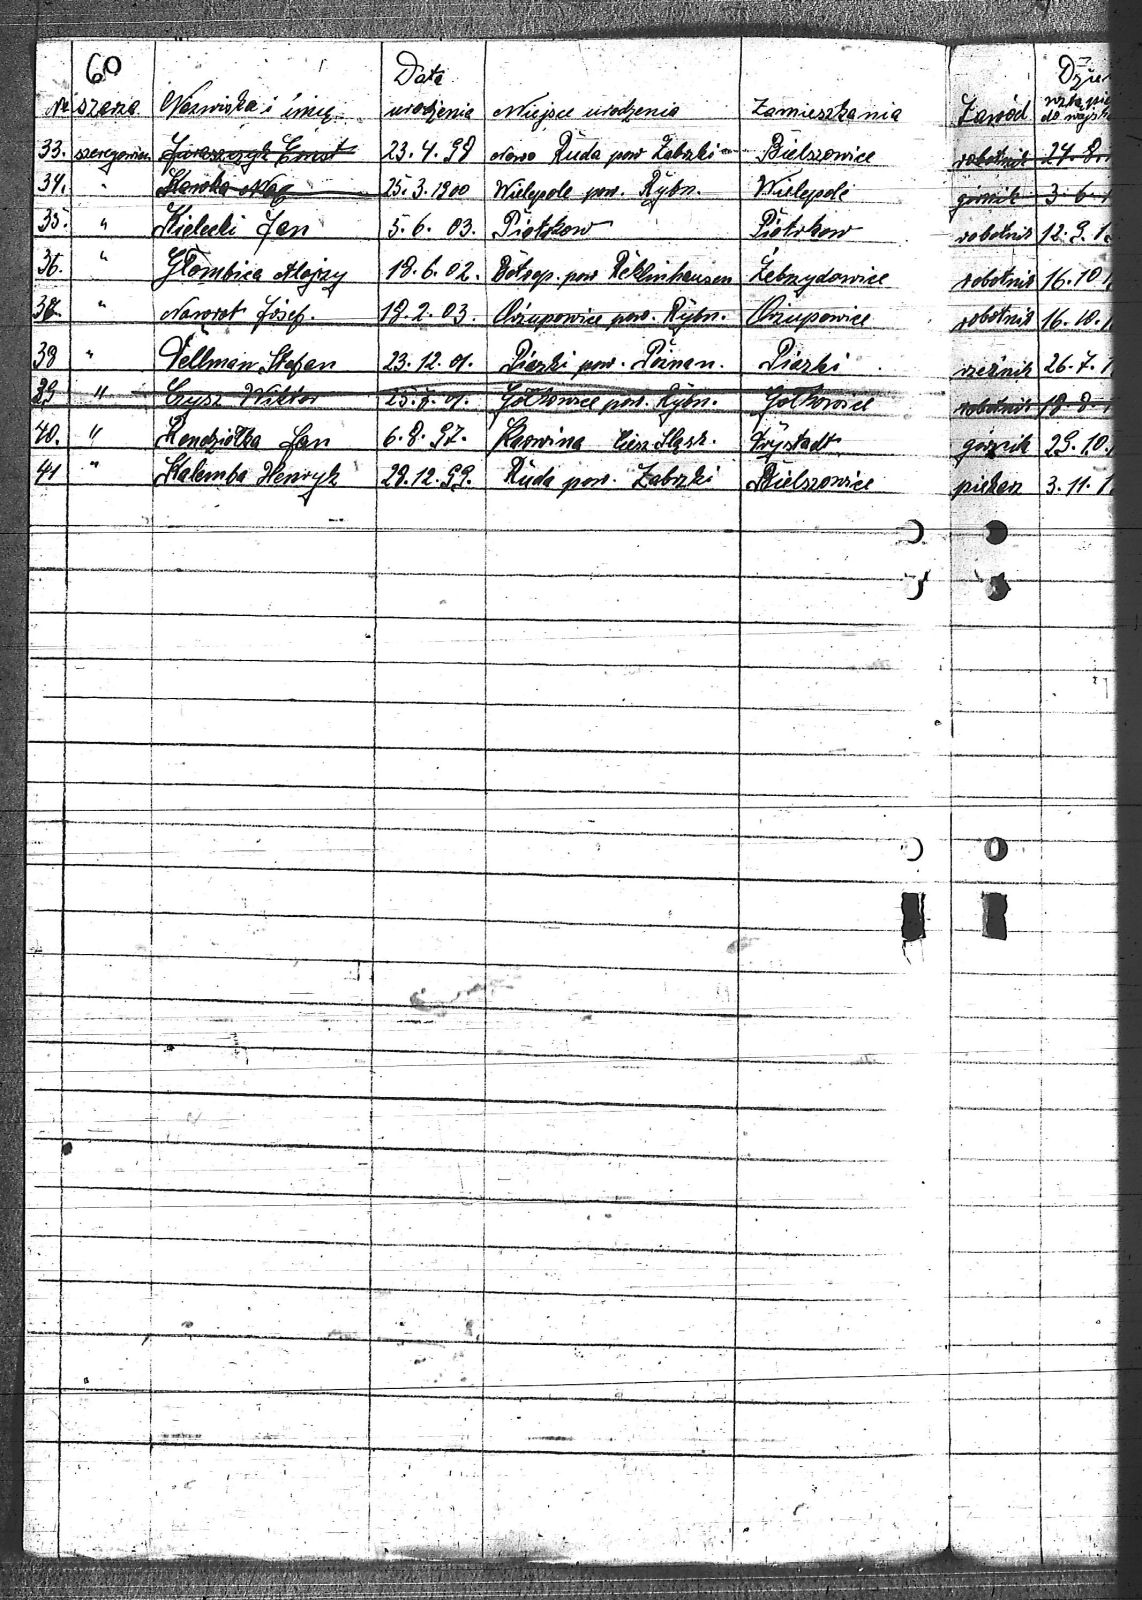 60 Data Dzień
Nr. szarża Nazwiska i imię urodzenia Miejsce urodzenia Zamieszkania Zawód wstąpie do wojsk
33. szeregowiec Juraszczyk Ernst 23.4.98 Nowo Ruda pow Zabrski Bielszowice robotnik 24.8.
34. " Skowka Max 25.3.1900 Wielepole pow. Rybn. Wielepole górnik 3.6.1
35. " Kielecki Jan 5.6.03. Piotrkow Piotrkow robotnik 12.9.1
36. " Głombica Alojzy 18.6.02. pow Reklinhausen Zebrzydowice robotnik 16.10.1
37. " Naworot Józef. 18.2.03. Orzupowice pow. Rybn. Orzupowice robotnik 16.10.1
38 " Vellman Stefan 23.12.01. Piaski pow. Poznan. Piaski rzeźnik 26.7.1
39 " Czysz Wiktor 25.7.01. Gołkowice pow. Rybn. Gołkowice robotnik 18.8.1
40. " Kendziołka Jan 6.8.97. Karwina Ciesz Sląsk. Frystadt górnik 29.10.
41 " Kalemba Henryk 28.12.99. Ruda pow. Zabrski Bielszowice piekarz 3.11.1